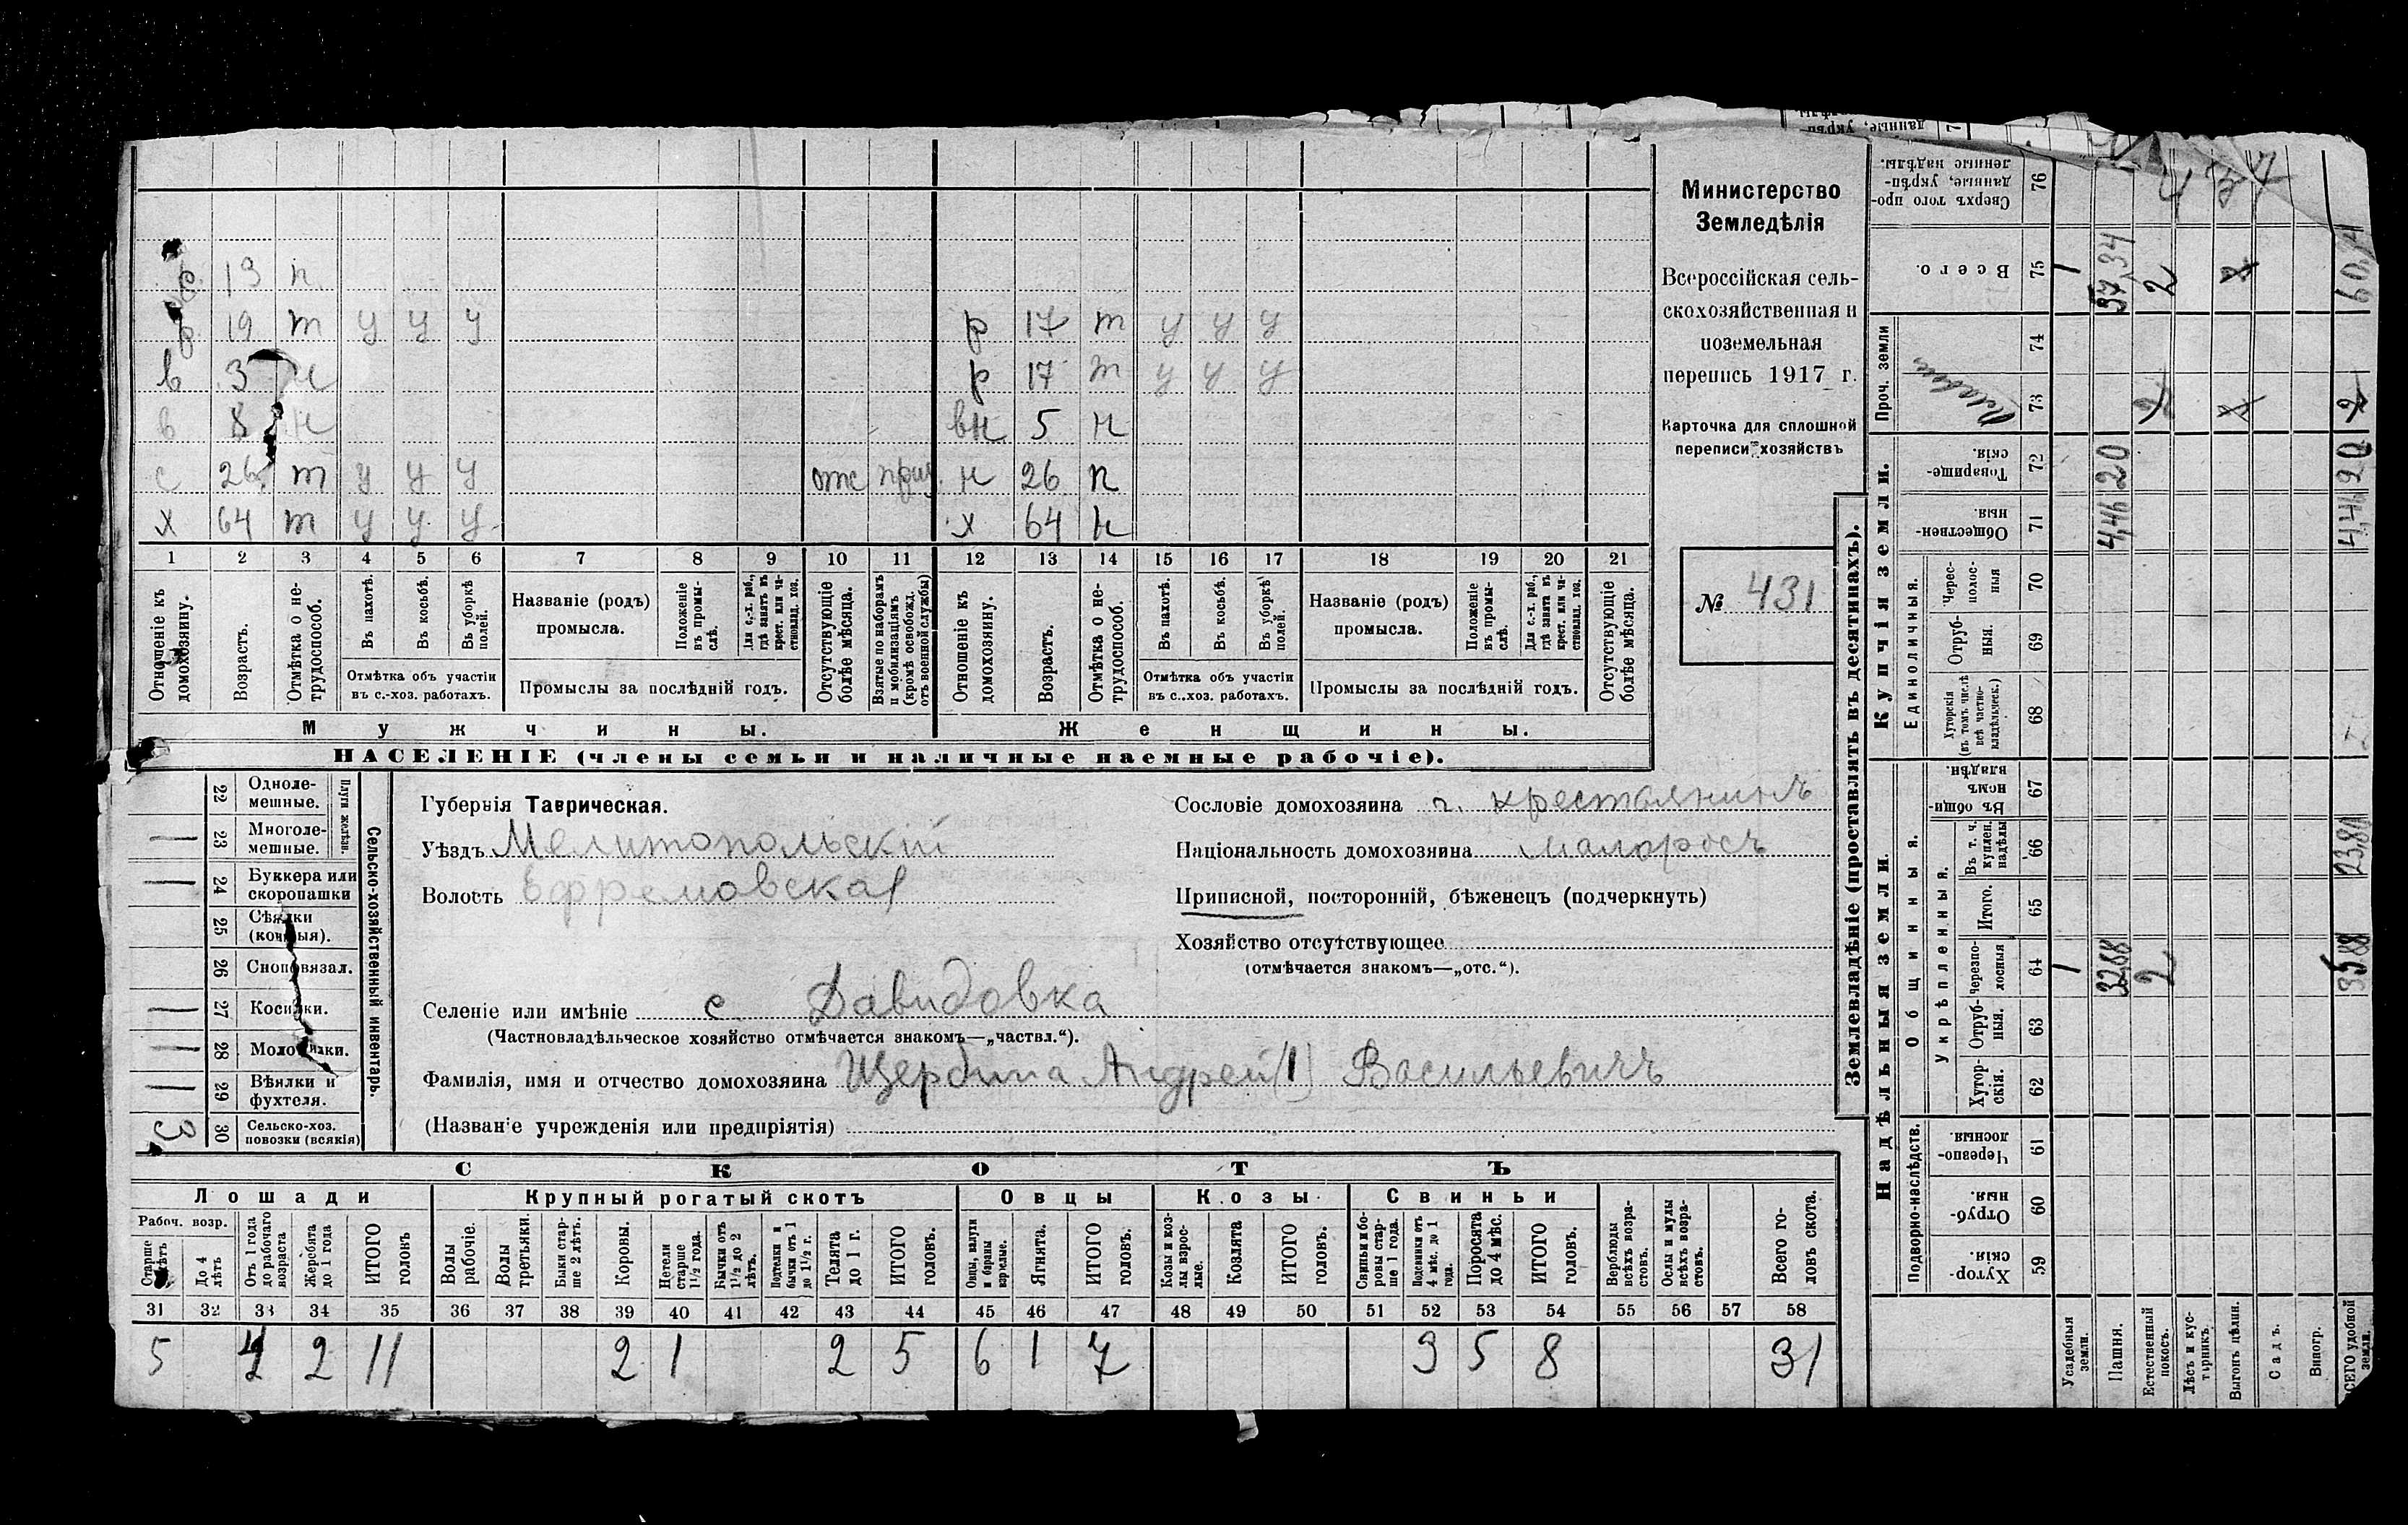 р. 13 п.
р. 19 т у у у р 17 т у у у
в 3 н р 17 т у у у
в 8 н вн 5 н
с 26 т у у у отс приз. н 26 п
х 64 т у у у х 64 н
1 2 3 4 5 6 7 8 9 10 11 12 13 14 15 16 17 18 19 20 21
Отношеніе къ домохозяину.
Возрастъ.
Отмѣтка о не-трудоспособ.
Въ пахотѣ.
Въ косьбѣ.
Въ уборкѣ полей.
Отмѣтка объ участіи
въ с.-хоз. работахъ.
Названіе (родъ)
промысла.
Положеніе въ промы-слѣ.
Для с.-х. раб., гдѣ занятъ въ крест. или ча-стновлад. хоз.
Промыслы за послѣдній годъ.
Отсутствующіе болѣе мѣсяца.
Взятые по наборамъ и мобилизаціямъ (кромѣ освобожд. отъ военной службы)
Отношеніе къ домохозяину.
Возрастъ.
Отмѣтка о не-трудоспособ.
Въ пахотѣ.
Въ косьбѣ.
Въ уборкѣ полей.
Отмѣтка объ участіи
въ с..хоз. работахъ.
Названіе (родъ)
промысла.
Положеніе въ промы-слѣ.
Для с.-х. раб., гдѣ занята въ крест. или ча-стновлад. хоз.
Промыслы за послѣдній годъ.
Отсутствующіе болѣе мѣсяца.
Мужчины. Женщины.
НАСЕЛЕНІЕ (члены семьи и наличные наемные рабочіе).
Министерство
Земледѣлія
Всероссійская сель-
скохозяйственная и
поземельная
перепись 1917 г.
Карточка для сплошной
переписи хозяйствъ
№ 431
Сельско-хозяйственный инвентарь.
Плуги желѣзн.
22 Одноле-мешные.
1 23 Многоле-мешные.
1 24 Буккера или скоропашки
25 Сѣялки (конныя).
26 Сноповязал.
1 27 Косилки.
1 28 Молотилки.
1 29 Вѣялки и фухтеля.
3 30 Сельско-хоз. повозки (всякія)
Губернія Таврическая.
Уѣздъ Мелитопольскій
Волость Ефремовская
Селеніе или имѣніе с. Давидовка
(Частновладѣльческое хозяйство отмѣчается знакомъ—„частвл.“).
Фамилія, имя и отчество домохозяина Щербина Андрей (1) Васильевичъ
(Названіе учрежденія или предпріятія)
Сословіе домохозяина крестьянинъ
Національность домохозяина малоросъ
Приписной, посторонній, бѣженецъ (подчеркнуть)
Хозяйство отсутствующее
(отмѣчается знакомъ—„отс.“).
СКОТЪ
Лошади Крупный рогатый скотъ Овцы Козы Свиньи
Рабоч. возр.
Старше лѣтъ
До 4 лѣтъ
Отъ 1 года до рабочаго возраста
Жеребята до 1 года
ИТОГО головъ
Волы рабочіе.
Волы третьяки.
Быки стар-ше 2 лѣтъ.
Коровы.
Нетели старше 1½ года.
Бычки отъ 1½ до 2 лѣтъ.
Подтелки и бычки отъ 1 до 1½ г.
Телята до 1 г.
ИТОГО головъ.
Овцы, валухи и бараны взрослые.
Ягнята.
ИТОГО головъ.
Козы и коз-лы взрос-лые.
Козлята
ИТОГО головъ.
Свиньи бо-ровы стар-ше 1 года.
Подсвинки отъ 4 мѣс. до 1 года.
Поросята до 4 мѣс.
ИТОГО головъ.
Верблюды всѣхъ возра-стовъ.
Ослы и мулы всѣхъ возра-стовъ.
Всего го-ловъ скота.
31 32 33 34 35 36 37 38 39 40 41 42 43 44 45 46 47 48 49 50 51 52 53 54 55 56 57 58
5 4 2 11 2 1 2 5 6 1 7 3 5 8 31
Землевладѣніе (проставлять въ десятинахъ).
Купчія земли.
Надѣльныя земли.
Проч. земли
Единоличныя.
Общинныя.
Укрѣпленныя.
Подворно-наслѣдств.
Сверхъ того про-данные, укрѣп-ленные надѣлы. 76
Всего. 75 1 37,34 2 60,4
74
73
Товарище-скія. 72 20 20
Обществен-ныя. 71 4,46 4,46
Черес-полос-ныя 70
Отруб-ныя. 69
Хуторскія (въ томъ числѣ всѣ частно-владѣльческ.) 68
Въ общи-номъ владѣн. 67
Въ т. ч. куплен. надѣлы 66 23,80
Итого. 65
Черезпо-лосныя 64 1 32,88 2 35,88
Отруб-ныя. 63
Хутор-скія. 62
Черезпо-лосныя. 61
Отруб-ныя. 60
Хутор-скія. 59
Усадебныя земли.
Пашня.
Естественный покосъ.
Лѣсъ и кус-тарникъ.
Выгонъ цѣлин.
Садъ.
Виногр.
ВСЕГО удобной земли.